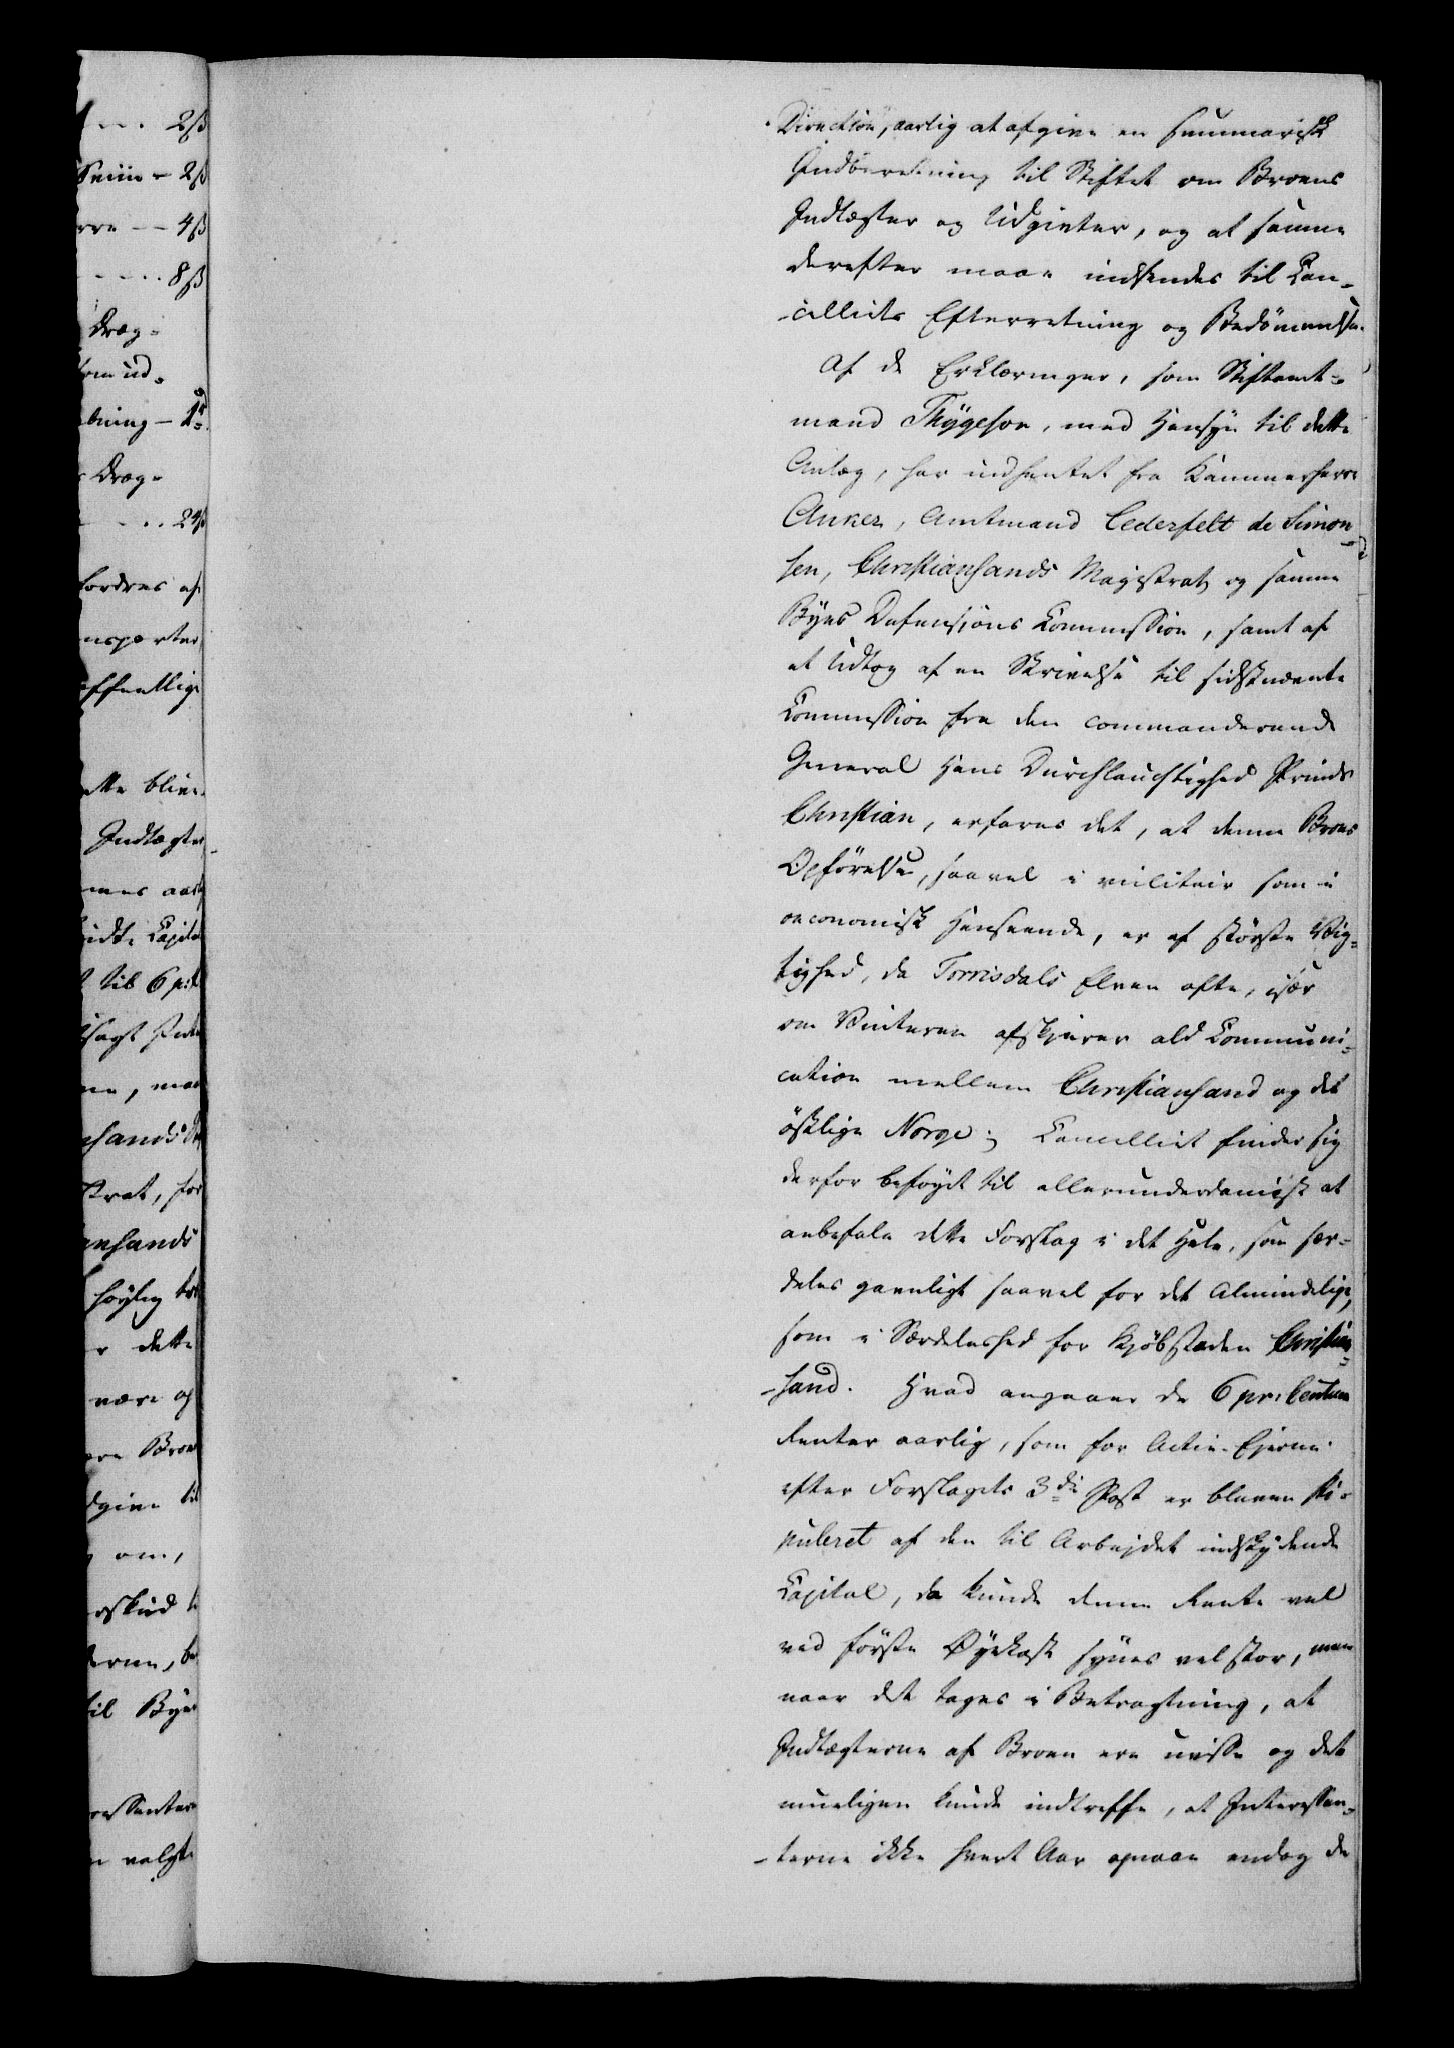 2ß
Sviin - 2ß
4ß
8ß
Drag-
som ud-
bning -
Drag-
24ß
fordres af
nsporter
offentlig
dette bliv
Indtægter
aarl
Capital
til 6 p:C
nsands
trat, for
nsands
dette
være og
Broe
dgive til
om,
rskud
til Byes
essenter
valgte
Direction, aarlig at afgive en summarisk
Indberetning til Stiftet om Broens
Indtægter og Udgivter, og at samme
derefter maae indsendes til Can-
-celliets Efterretning og Bedömmelse.
Af de Erklæringer, som Stiftamt-
mand Thygeson, med Hensyn til dette
Anlæg, har indhentet fra Kammerherre
Anker, Amtmand Cederfelt de Simon-
sen, Christiansands Magistrat og samme
Byes Defensions Commission, samt af
et Udtog af en Skrivelse til sidstnævnte
Commission fra den commanderende
General Hans Durchlauchtighed Prinds
Christian, erfares det, at denne Broes
Opførelse, saavel i militair som i
oeconomisk Henseende, er af största Vig-
tighed, da Torrisdals Elven ofte, især
om Vinteren afskjærer ald Communi-
cation mellem Christiansand og det
östlige Norge; Cancelliet finder sig
derfor beföyet til allerunderdanigst at
anbefale dette Forslag i det Hele, som sær-
deles gavnligt saavel for det Almindelige,
som i Særdeleshed for Kjöbstæden Christian-
-sand. Hvad angaaer de 6 pr: Centum
Renter aarlig, som for Actie-Ejerne
efter Forslagets 3die Post er bleven sti-
puleret af den til Arbejdet indskydende
Capital, da kunde denne Rente vel
ved förste Öyekast synes vel stor, men
naar det tages i Betragtning, at
Indtægterne af Broen ere uvisse og det
mueligen kunde indtreffe, at Interessen-
-terne ikke hvert Aar opnaae endog de